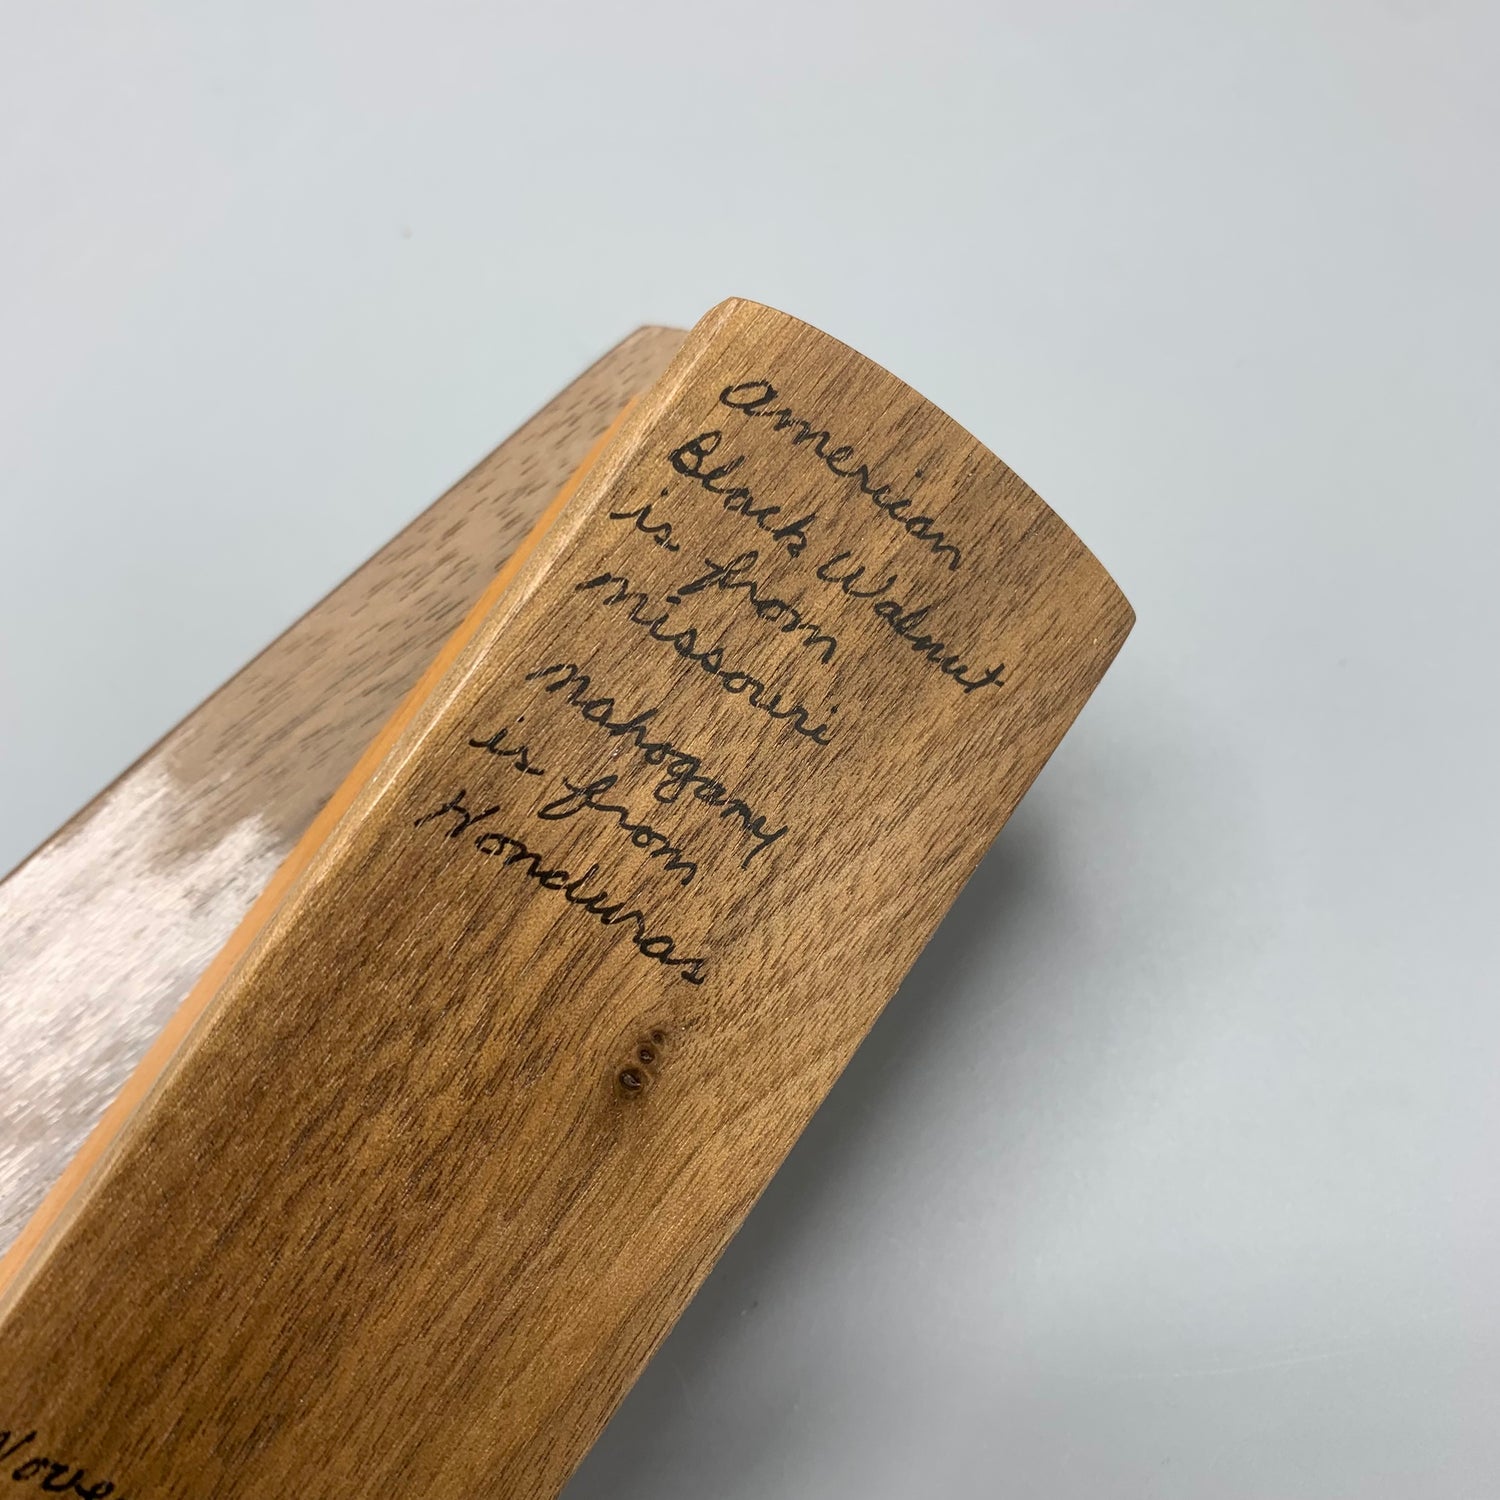 American
Black Walnut
is from
missouri
mahogany
is from
Honduras